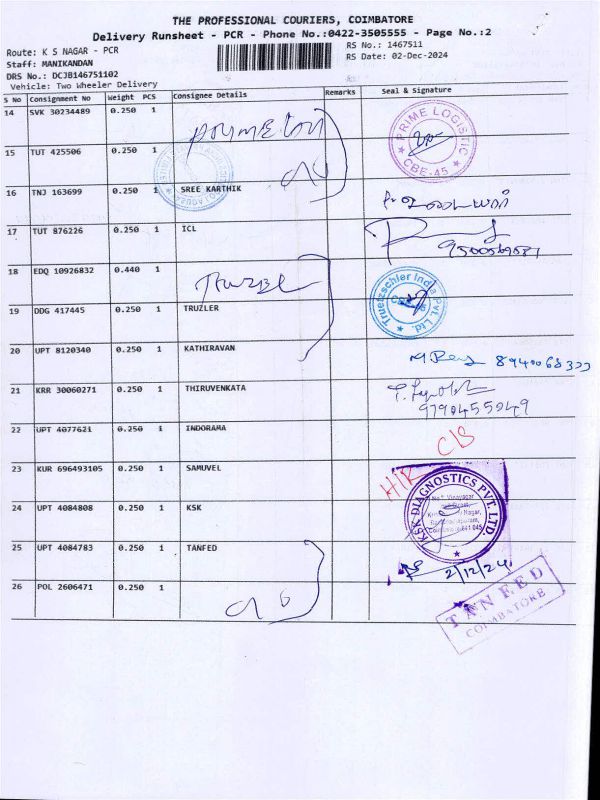 THE PROFESSIONAL COURIERS, COIMBATORE
Delivery Runsheet - PCR - Phone No.:0422-3505555 - Page No.:2
Route: K S NAGAR - PCR
RS No.: 1467511
Staff: MANIKANDAN
RS Date: 02-Dec-2024
DRS No.: DCJB146751102
Vehicle: Two Wheeler Delivery
S No Consignment No Weight PCS Consignee Details Remarks Seal & Signature
14 SVK 30234489 0.250 1
PRIME LOGISTIC
CBE-45
15 TUT 425506 0.250 1
16 TNJ 163699 0.250 1 SREE KARTHIK
17 TUT 876226 0.250 1 ICL
9500569081
18 EDQ 10926832 0.440 1
Truetzschler India Pvt. Ltd.
19 DDG 417445 0.250 1 TRUZLER
20 UPT 8120340 0.250 1 KATHIRAVAN
21 KRR 30060271 0.250 1 THIRUVENKATA
9790455949
22 UPT 4077621 0.250 1 INDORAMA
C/S
23 KUR 696493105 0.250 1 SAMUVEL
H/R
KSK DIAGNOSTICS PVT. LTD.
24 UPT 4084808 0.250 1 KSK
25 UPT 4084783 0.250 1 TANFED
2/12/24
26 POL 2606471 0.250 1
COIMBATORE